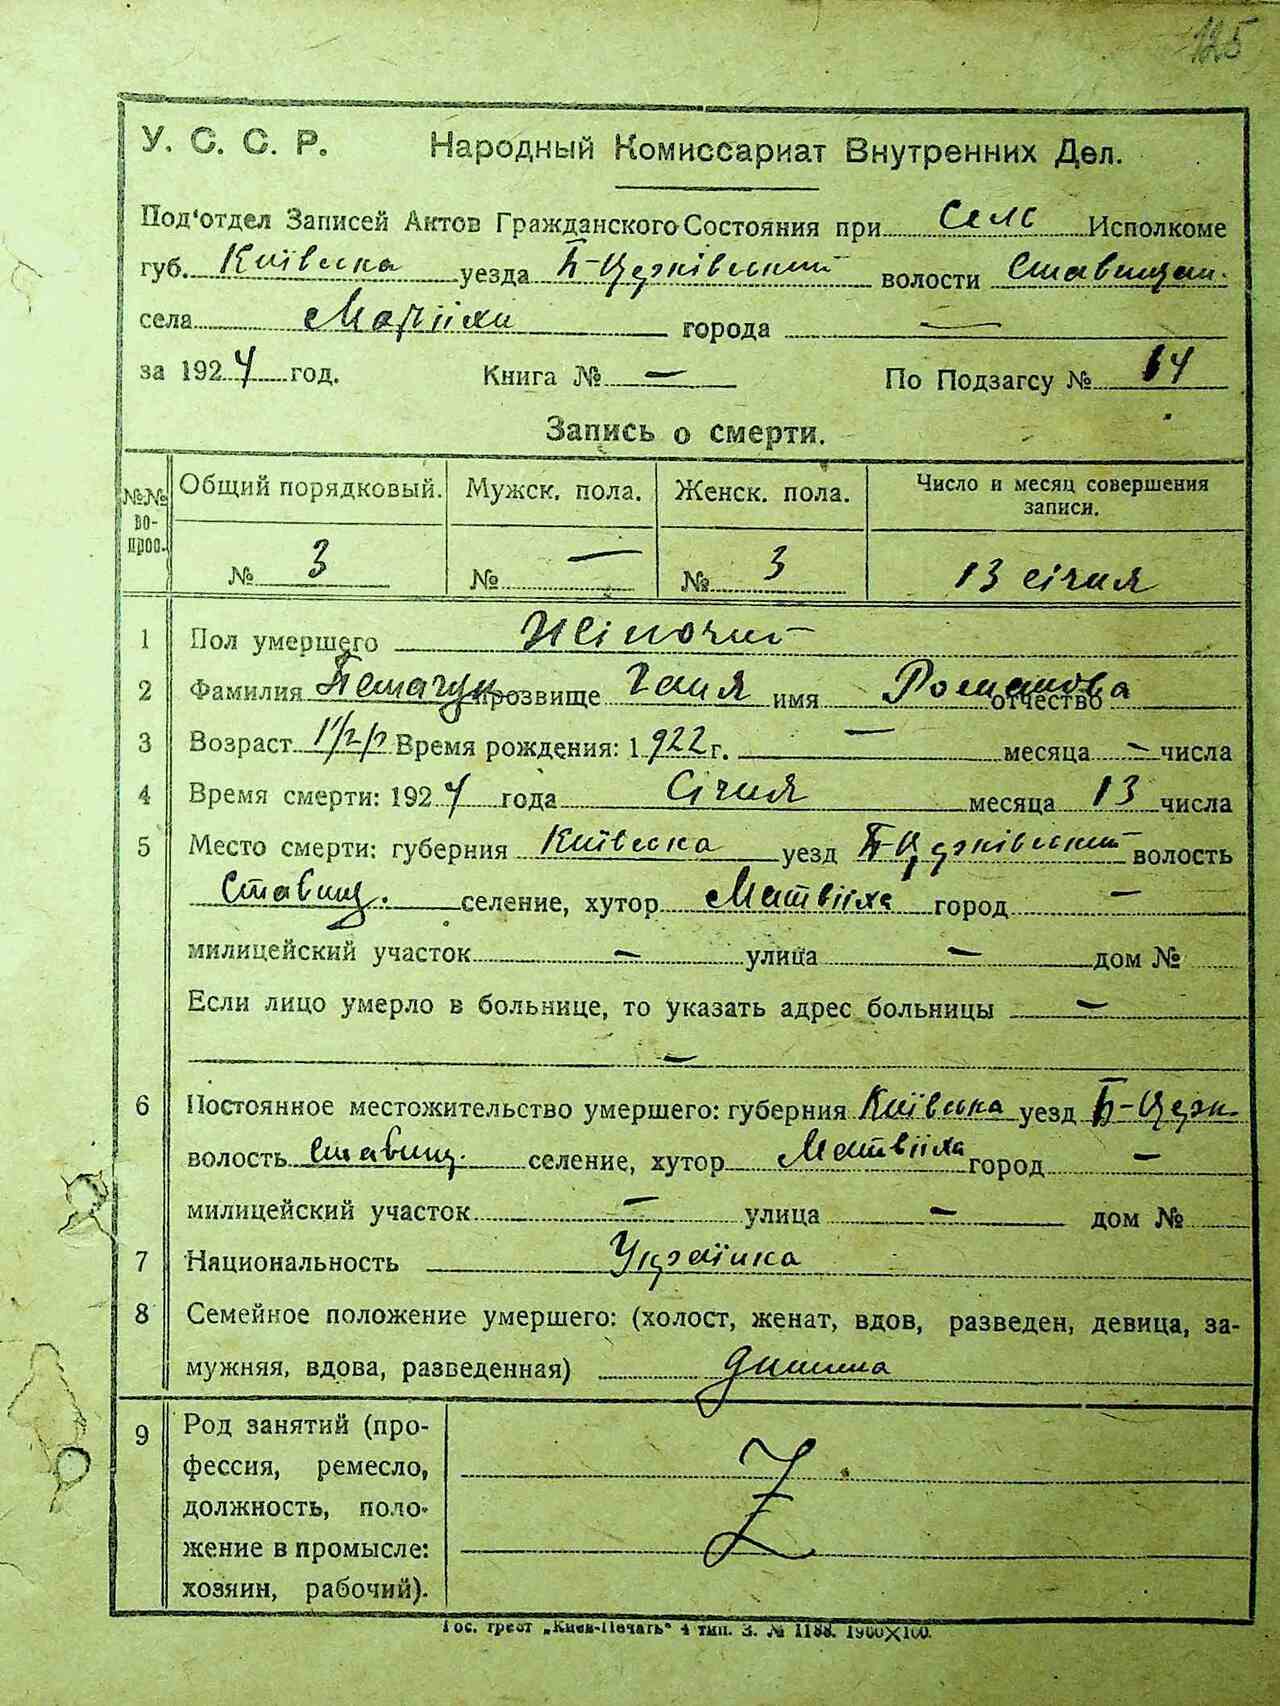 125
У. С. С. Р. Народный Комиссариат Внутренних Дел.
Под'отдел Записей Актов Гражданского Состояния при Сель Исполкоме
губ. Київська уезда Б-Церківський волости Ставищан.
села города —
за 1924 год. Книга № — По Подзагсу № 14
Запись о смерти.
№№ вопрос. Общий порядковый. Мужск. пола. Женск. пола. Число и месяц совершения записи.
№ 3 № — № 3 13 січня
1 Пол умершего Жіночий
2 Фамилия прозвище Ганя имя Романова отчество
3 Возраст 1 1/2 р Время рождения: 1922 г. — месяца — числа
4 Время смерти: 1924 года Січня месяца 13 числа
5 Место смерти: губерния Київська уезд Б-Церківський волость
Ставищ. селение, хутор Матвіїха город —
милицейский участок — улица — дом №
Если лицо умерло в больнице, то указать адрес больницы —
—
6 Постоянное местожительство умершего: губерния Київська уезд Б-Церк.
волость Ставищ. селение, хутор Матвіїха город —
милицейский участок — улица — дом №
7 Национальность Українка
8 Семейное положение умершего: (холост, женат, вдов, разведен, девица, за-
мужняя, вдова, разведенная) дитина
9 Род занятий (про-
фессия, ремесло,
должность, поло-
жение в промысле:
хозяин, рабочий).
Гос. трест „Киев-Печать" 4 тип. З. № 1188. 1900×100.